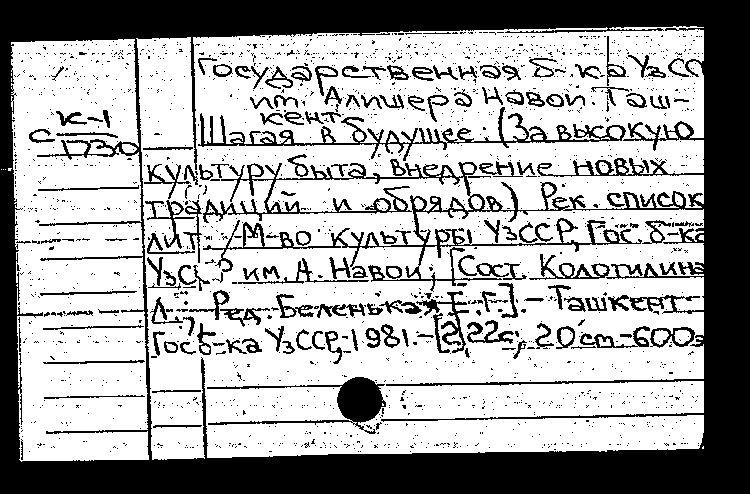 Государственная б-ка УзССР
им. Алишера Навои. Таш-
кент
К-1
С 1730
Шагая в будущее: (За высокую
культуру быта, внедрение новых
традиций и обрядов). Рек. список
лит. /М-во культуры УзССР, Гос. б-ка
УзССР им. А. Навои; [Сост. Колотилина
Л.; Ред. Беленькая Е.Г.]. - Ташкент:
Гос б-ка УзССР, 1981. - [2], 22с; 20 см - 600э